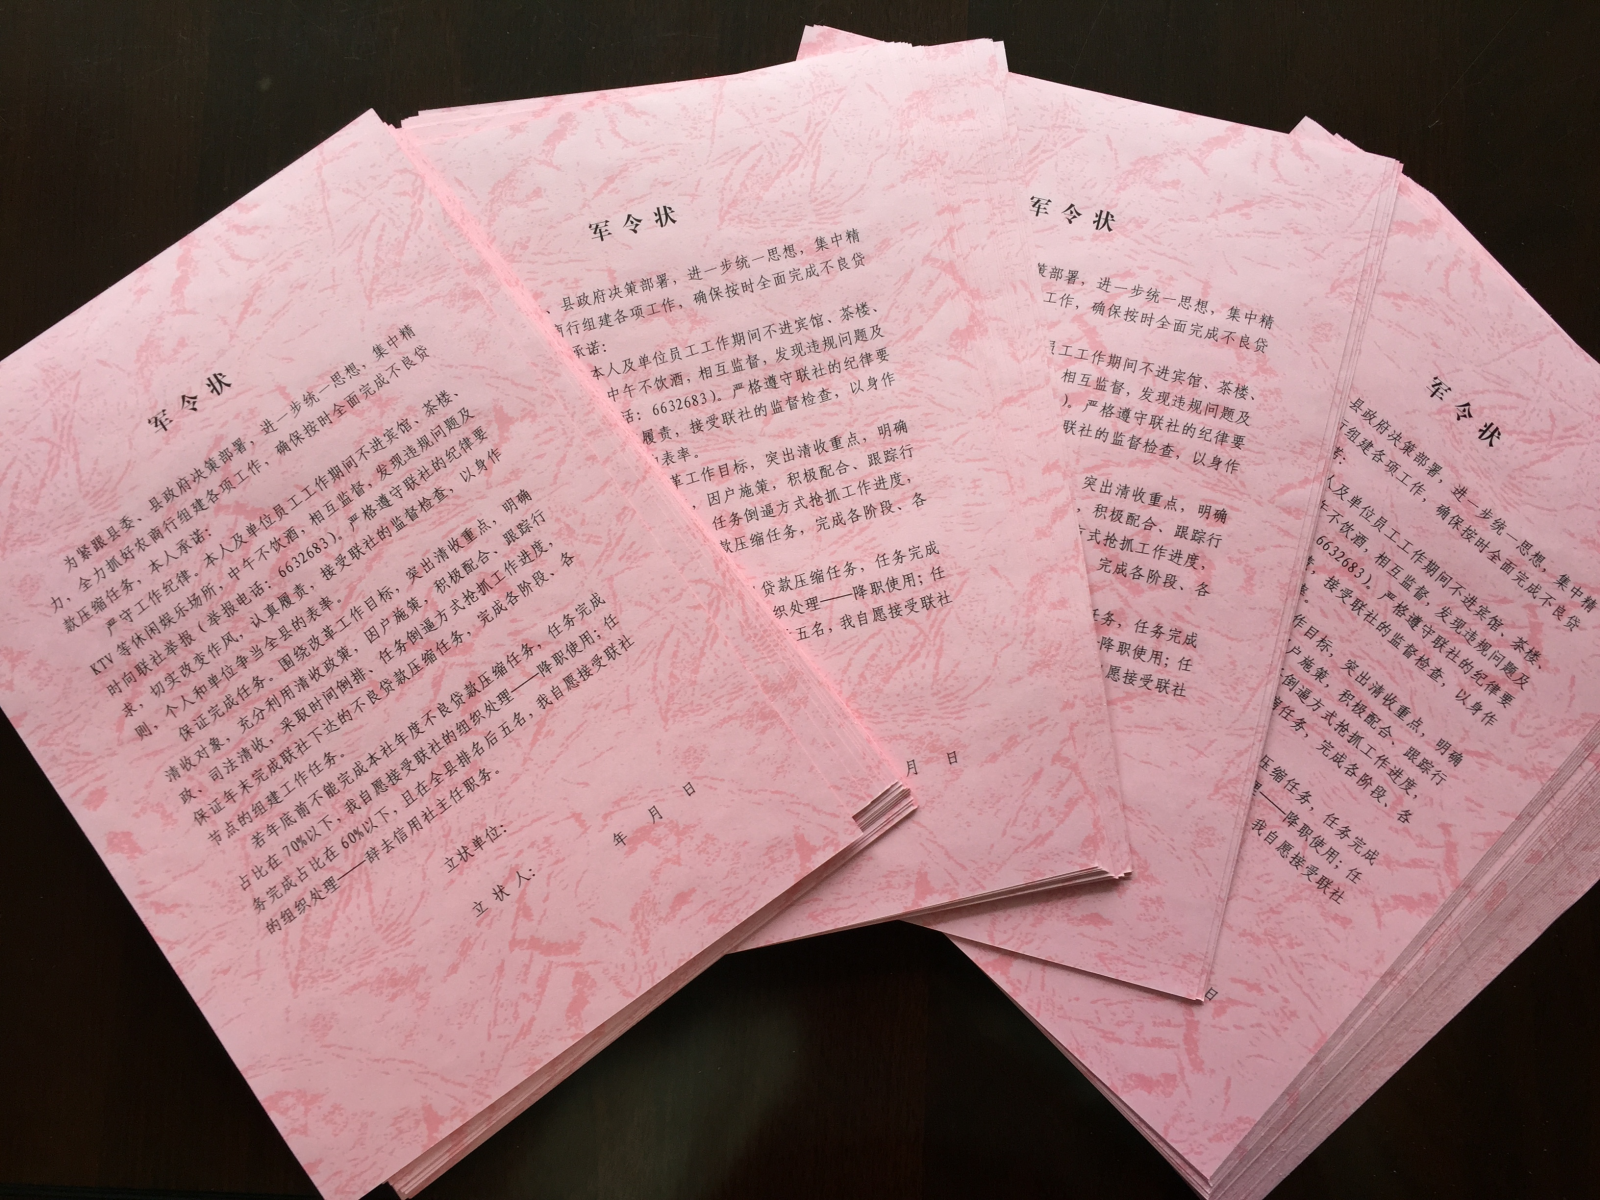 军令状
为紧跟县委、县政府决策部署，进一步统一思想，集中精
力，全力抓好农商行组建各项工作，确保按时全面完成不良贷
款压缩任务，本人承诺：
严守工作纪律。本人及单位员工工作期间不进宾馆、茶楼、
KTV等休闲娱乐场所，中午不饮酒，相互监督，发现违规问题及
时向联社举报（举报电话：6632683）。严格遵守联社的纪律要
求，切实改变作风，认真履责，接受联社的监督检查，以身作
则，个人和单位争当全县的表率。
保证完成任务。围绕改革工作目标，突出清收重点，明确
清收对象，充分利用清收政策，因户施策，积极配合、跟踪行
政、司法清收，采取时间倒排、任务倒逼方式抢抓工作进度，
保证年末完成联社下达的不良贷款压缩任务，完成各阶段、各
节点的组建工作任务。
若年底前不能完成本社年度不良贷款压缩任务，任务完成
占比在70%以下，我自愿接受联社的组织处理——降职使用；任
务完成占比在60%以下，且在全县排名后五名，我自愿接受联社
的组织处理——辞去信用社主任职务。
立状单位：
立 状 人：
年 月 日
军令状
、县政府决策部署，进一步统一思想，集中精
商行组建各项工作，确保按时全面完成不良贷
承诺：
本人及单位员工工作期间不进宾馆、茶楼、
中午不饮酒，相互监督，发现违规问题及
话：6632683）。严格遵守联社的纪律要
履责，接受联社的监督检查，以身作
表率。
革工作目标，突出清收重点，明确
，因户施策，积极配合、跟踪行
任务倒逼方式抢抓工作进度，
款压缩任务，完成各阶段、各
贷款压缩任务，任务完成
织处理——降职使用；任
五名，我自愿接受联社
月 日
军令状
策部署，进一步统一思想，集中精
工作，确保按时全面完成不良贷
员工工作期间不进宾馆、茶楼、
相互监督，发现违规问题及
）。严格遵守联社的纪律要
联社的监督检查，以身作
突出清收重点，明确
，积极配合、跟踪行
式抢抓工作进度，
完成各阶段、各
任务，任务完成
降职使用；任
愿接受联社
日
军令状
县政府决策部署，进一步统一思想，集中精
组建各项工作，确保按时全面完成不良贷
人及单位员工工作期间不进宾馆、茶楼、
午不饮酒，相互监督，发现违规问题及
6632683）。严格遵守联社的纪律要
，接受联社的监督检查，以身作
作目标，突出清收重点，明确
户施策，积极配合、跟踪行
倒逼方式抢抓工作进度，
任务，完成各阶段、各
压缩任务，任务完成
——降职使用；任
我自愿接受联社